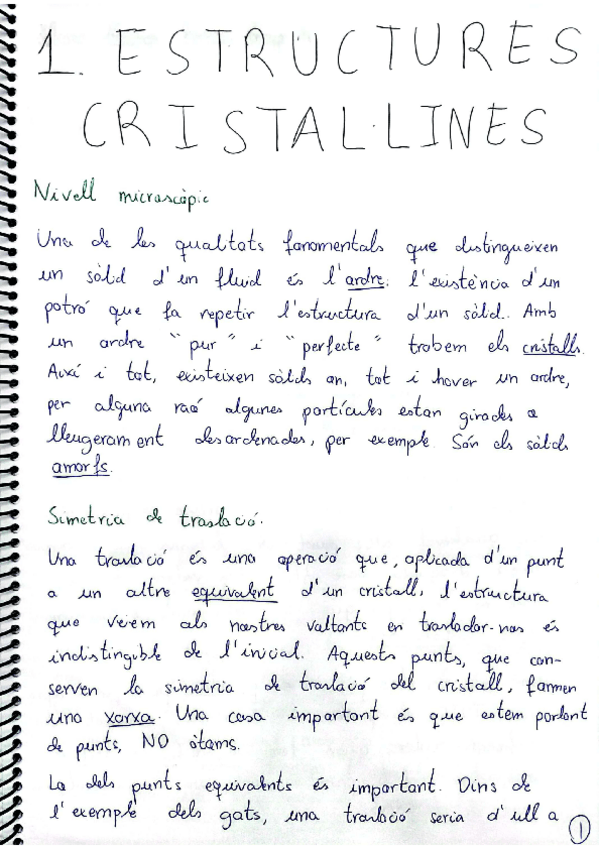 1. ESTRUCTURES
CRISTAL·LINES
Nivell microscòpic
Una de les qualitats fonamentals que distingueixen
un sòlid d'un fluid és l'ordre: l'existència d'un
patró que fa repetir l'estructura d'un sòlid. Amb
un ordre "pur" i "perfecte" trobem els cristalls.
Així i tot, existeixen sòlids on, tot i haver un ordre,
per alguna raó algunes partícules estan girades o
lleugerament desordenades, per exemple. Són els sòlids
amorfs.
Simetria de traslació.
Una traslació és una operació que, aplicada d'un punt
a un altre equivalent d'un cristall, l'estructura
que veiem als nostres voltants en traslladar-nos és
indistingible de l'inicial. Aquests punts, que con-
serven la simetria de traslació del cristall, formen
una xarxa. Una cosa important és que estem parlant
de punts, NO àtoms.
Lo dels punts equivalents és important. Dins de
l'exemple dels gats, una traslació seria d'ull a
1